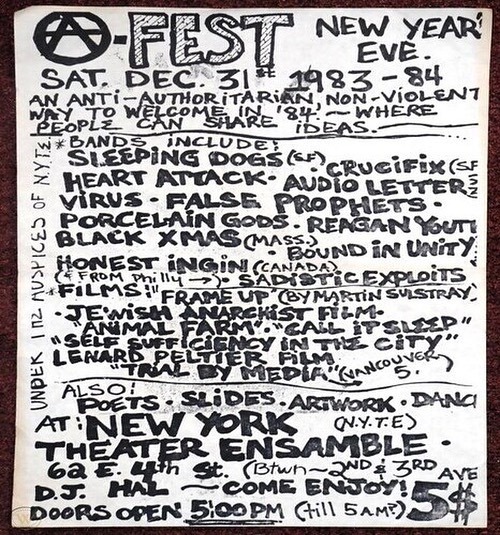 Ⓐ-FEST NEW YEAR'
EVE.
SAT. DEC. 31st 1983-84
AN ANTI-AUTHORITARIAN, NON-VIOLENT
WAY TO WELCOME IN '84 ~ WHERE
PEOPLE CAN SHARE iDEAS.
*BANDS INCLUDE:
SLEEPING DOGS (SF) · CRUCIFIX (SF
HEART ATTACK · AUDIO LETTER
VIRUS · FALSE PROPHETS ·
PORCELAIN GODS · REAGAN YOUTH
BLACK XMAS (MASS.)
· BOUND IN UNITY
HONEST INGIN (CANADA)
(& FROM Philly →) · SADISTIC EXPLOITS
*FILMS: "FRAME UP" (BY MARTIN SULSTRAY)
· JEWISH ANARCHIST FILM ·
"ANIMAL FARM" · "CALL IT SLEEP"
"SELF SUFFICIENCY IN THE CITY"
LENARD PELTIER FILM
"TRIAL BY MEDIA" (VANCOUVER
5.)
ALSO!
POETS · SLIDES · ARTWORK · DANC
AT: NEW YORK (N.Y.T.E)
THEATER ENSAMBLE ·
62 E. 4th St. (Btwn ~ 2ND & 3RD AVE
D.J. HAL ~ COME ENJOY! 5$
DOORS OPEN 5:00PM (till 5 AM?)
UNDER THE AUSPICES OF N.Y.T.E.